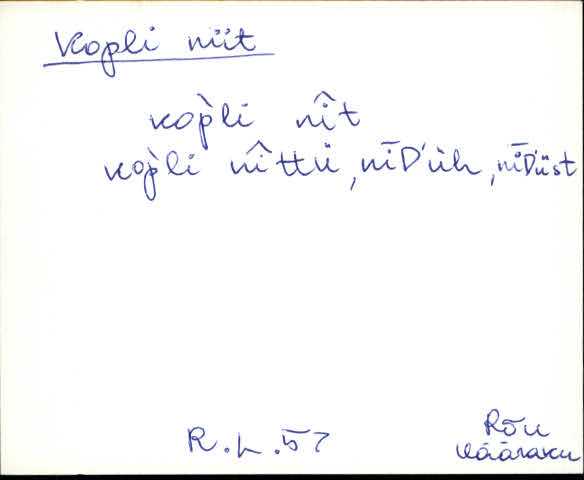 Kopli niit
kop̀li nî̄t
kop̀li nî̄ttü, nīD'üh, nīD'üst
R.L.57
Rõu
Kääraku